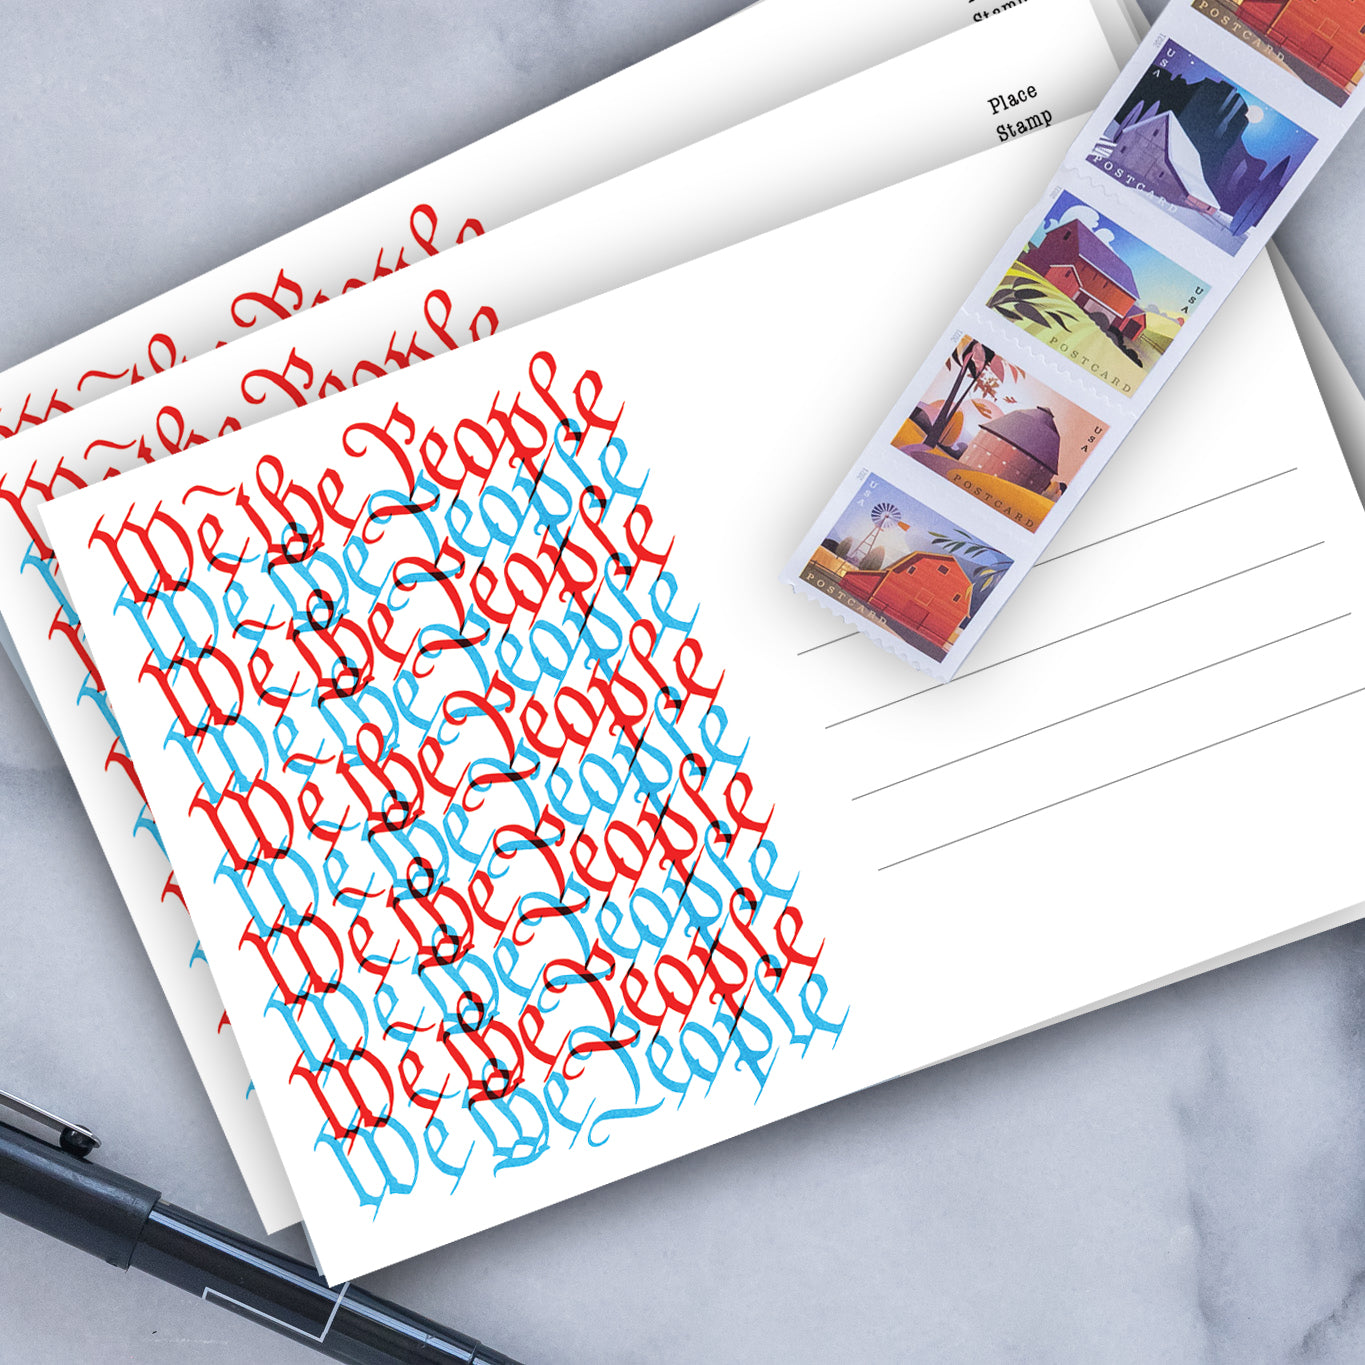 Stamp
Place
Stamp
We the People
We the People
We the People
We the People
We the People
We the People
We the People
We the People
We the People
We the People
We the People
We the People
POSTCARD
2021
USA
POSTCARD
2021
USA
POSTCARD
2021
USA
POSTCARD
2021
USA
POSTCARD